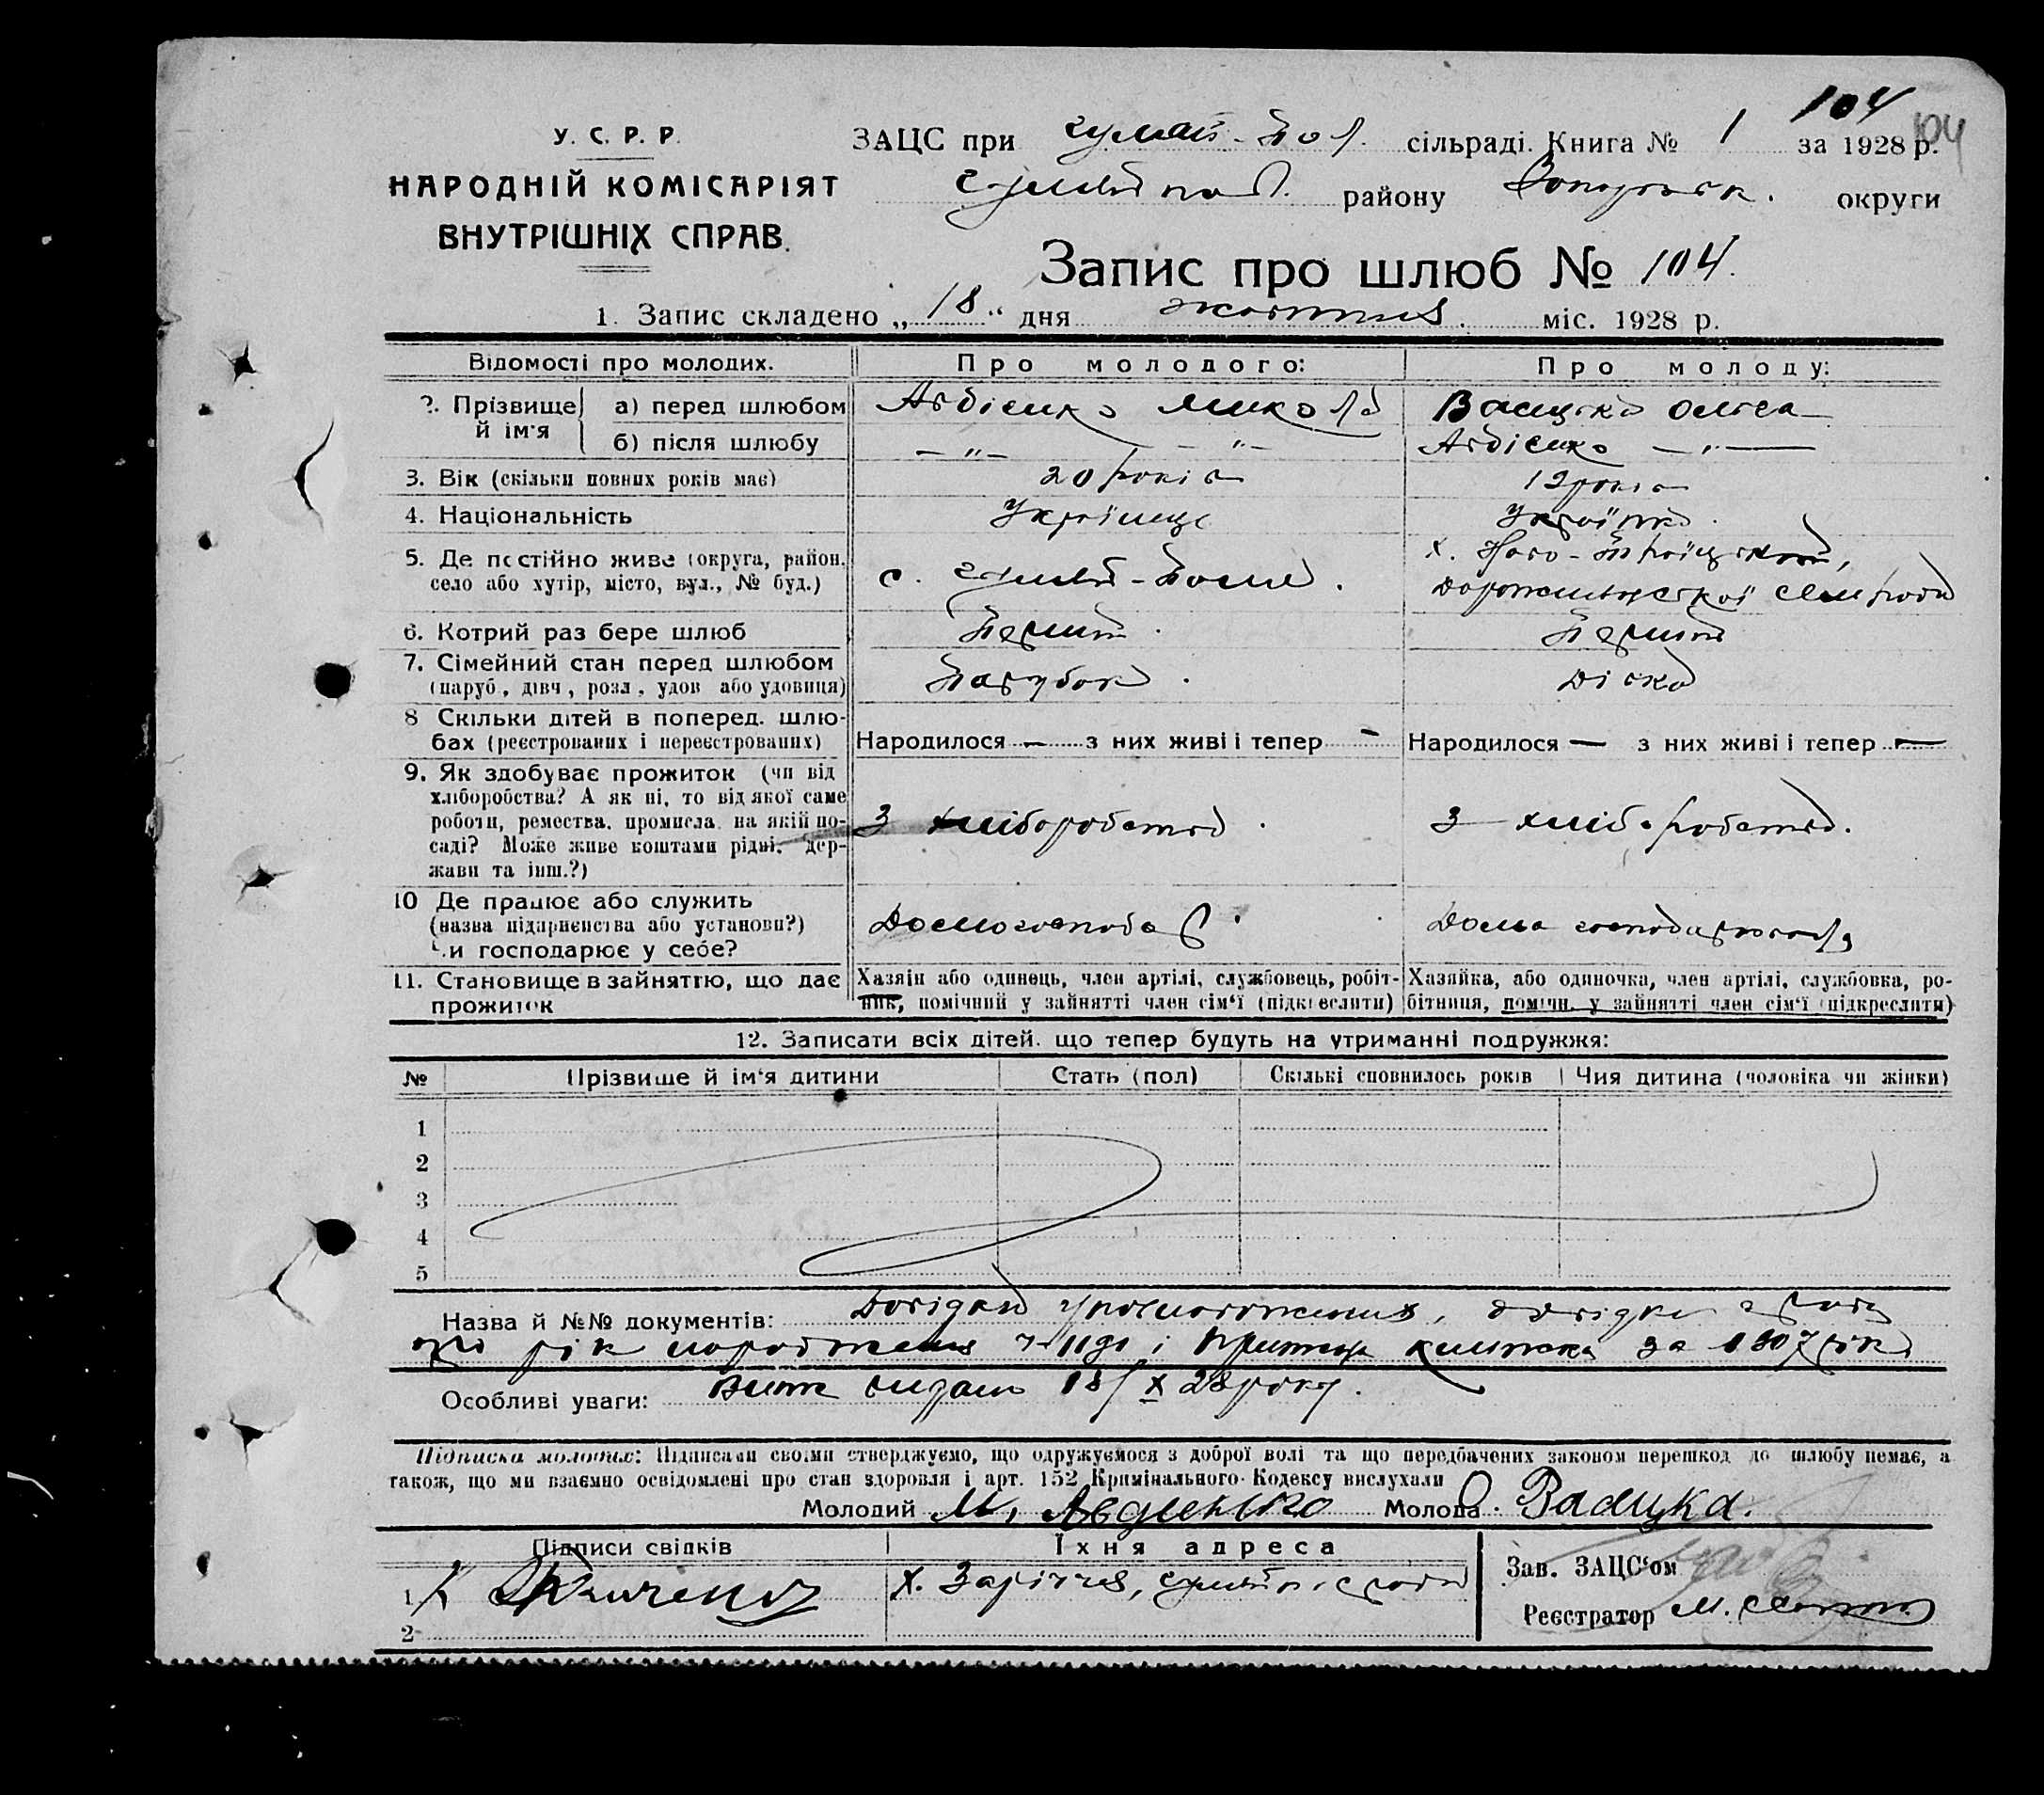 104
104
У. С. Р. Р.
НАРОДНІЙ КОМІСАРІЯТ
ВНУТРІШНІХ СПРАВ.
ЗАЦС при Гуляй-Пол. сільраді. Книга № 1 за 1928 р.
Гуляйпол. району Запорізьк. округи
Запис про шлюб № 104.
1. Запис складено „ 18 “ дня жовтня. міс. 1928 р.
Відомості про молодих. Про молодого: Про молоду:
2. Прізвище й ім'я
а) перед шлюбом Авдієнко Микола Ольга
б) після шлюбу —„— —„— Авдієнко —„—
3. Вік (скільки повних років має) 20 років років
4. Національність Українець Українка.
5. Де постійно живе (округа, район, х. Ново-Троїцький,
село або хутір, місто, вул., № буд.) с. Гуляй-Поле. сільради
6. Котрий раз бере шлюб Перший. Перший
7. Сімейний стан перед шлюбом
(паруб., дівч., розл., удов. або удовиця) Парубок. Дівка
8 Скільки дітей в поперед. шлю-
бах (реєстрованих і нереєстрованих) Народилося — з них живі і тепер — Народилося — з них живі і тепер —
9. Як здобуває прожиток (чи від
хліборобства? А як ні, то від якої саме
роботи, ремества, промисла, на якій по-
саді? Може живе коштами рідні, дер-
жави та інш.?)
З хліборобства. З хліборобства.
10 Де працює або служить
(назва підприємства або установи?)
Чи господарює у себе?
Домогосподар. Дома
11. Становище в зайняттю, що дає
прожиток
Хазяін або одинець, член артілі, службовець, робіт-
ник, помічний у зайнятті член сім'ї (підкреслити)
Хазяйка, або одиночка, член артілі, службовка, ро-
бітниця, помічн. у зайнятті член сім'ї (підкреслити)
12. Записати всіх дітей, що тепер будуть на утриманні подружжя:
№ Прізвище й ім'я дитини Стать (пол) Скількі сповнилось років Чия дитина (чоловіка чи жінки)
1
2
3
4
5
Назва й №№ документів: Довідка
рік народження і книжка за рік
Особливі уваги: Витяг видано 18/X 28 року.
Підписка молодих: Підписами своіми стверджуємо, що одружуємося з доброї волі та що передбачених законом перешкод до шлюбу немає, а
також, що ми взаємно освідомлені про стан здоровля і арт. 152 Кримінального Кодексу вислухали
Молодий М. Авдиенко Молода
Підписи свідків Їхня адреса
1 К х. Зарічча,
2
Зав. ЗАЦС'ом
Реєстратор М.